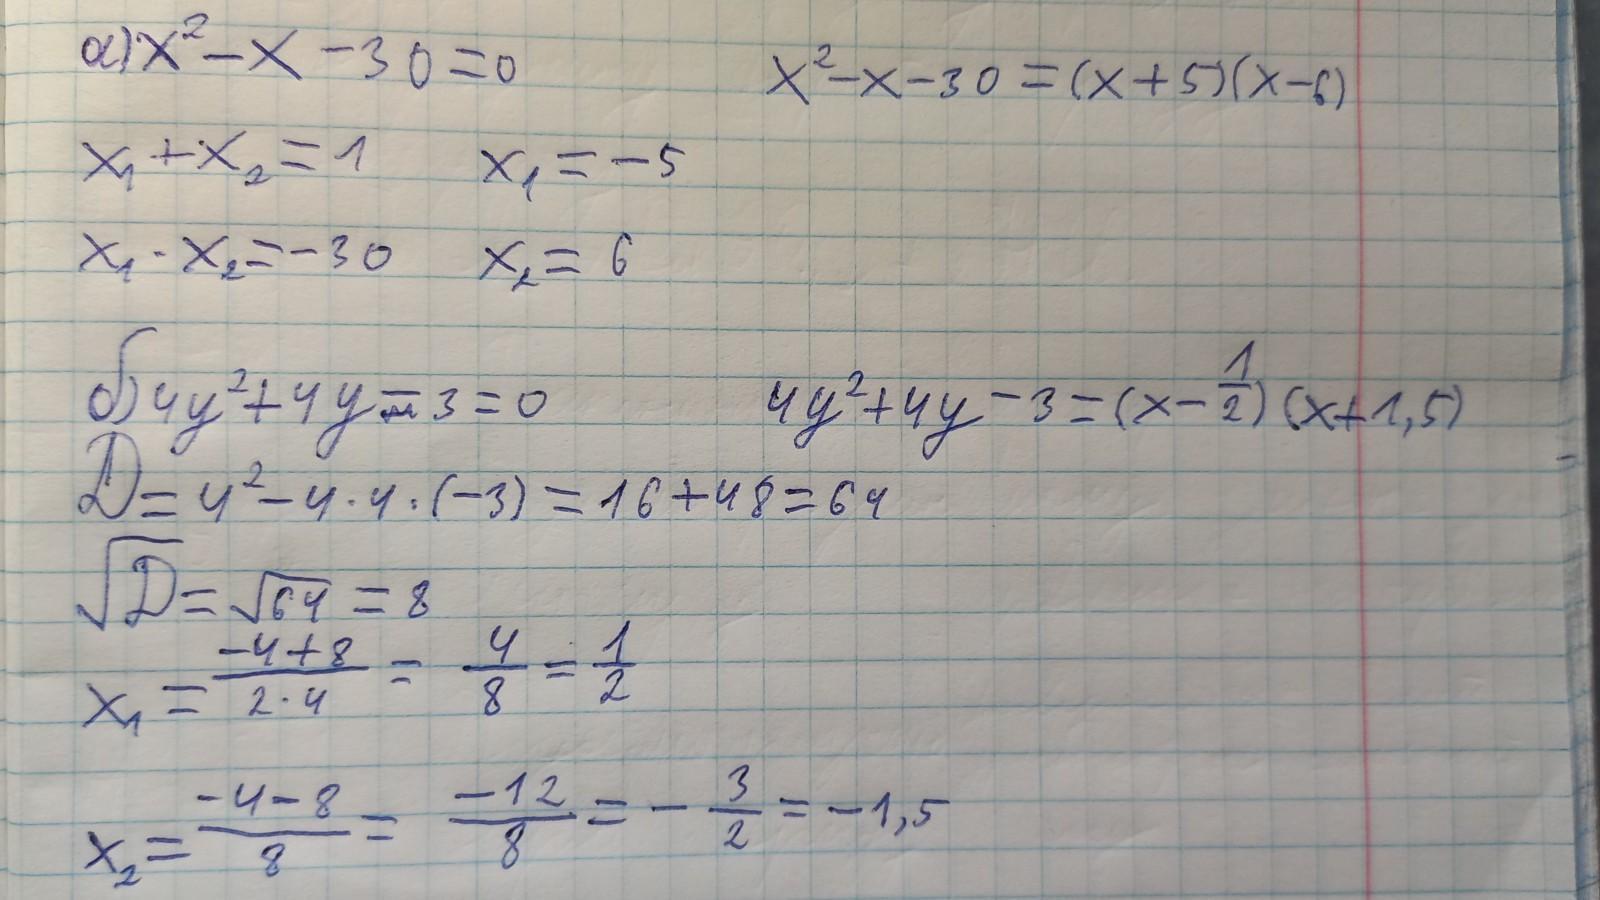 а) x² - x - 30 = 0
x² - x - 30 = (x + 5)(x - 6)
x₁ + x₂ = 1
x₁ = -5
x₁ · x₂ = -30
x₂ = 6
б) 4y² + 4y - 3 = 0
4y² + 4y - 3 = (x - 1/2)(x + 1,5)
D = 4² - 4 · 4 · (-3) = 16 + 48 = 64
√D = √64 = 8
x₁ = (-4+8)/(2·4) = 4/8 = 1/2
x₂ = (-4-8)/8 = -12/8 = -3/2 = -1,5